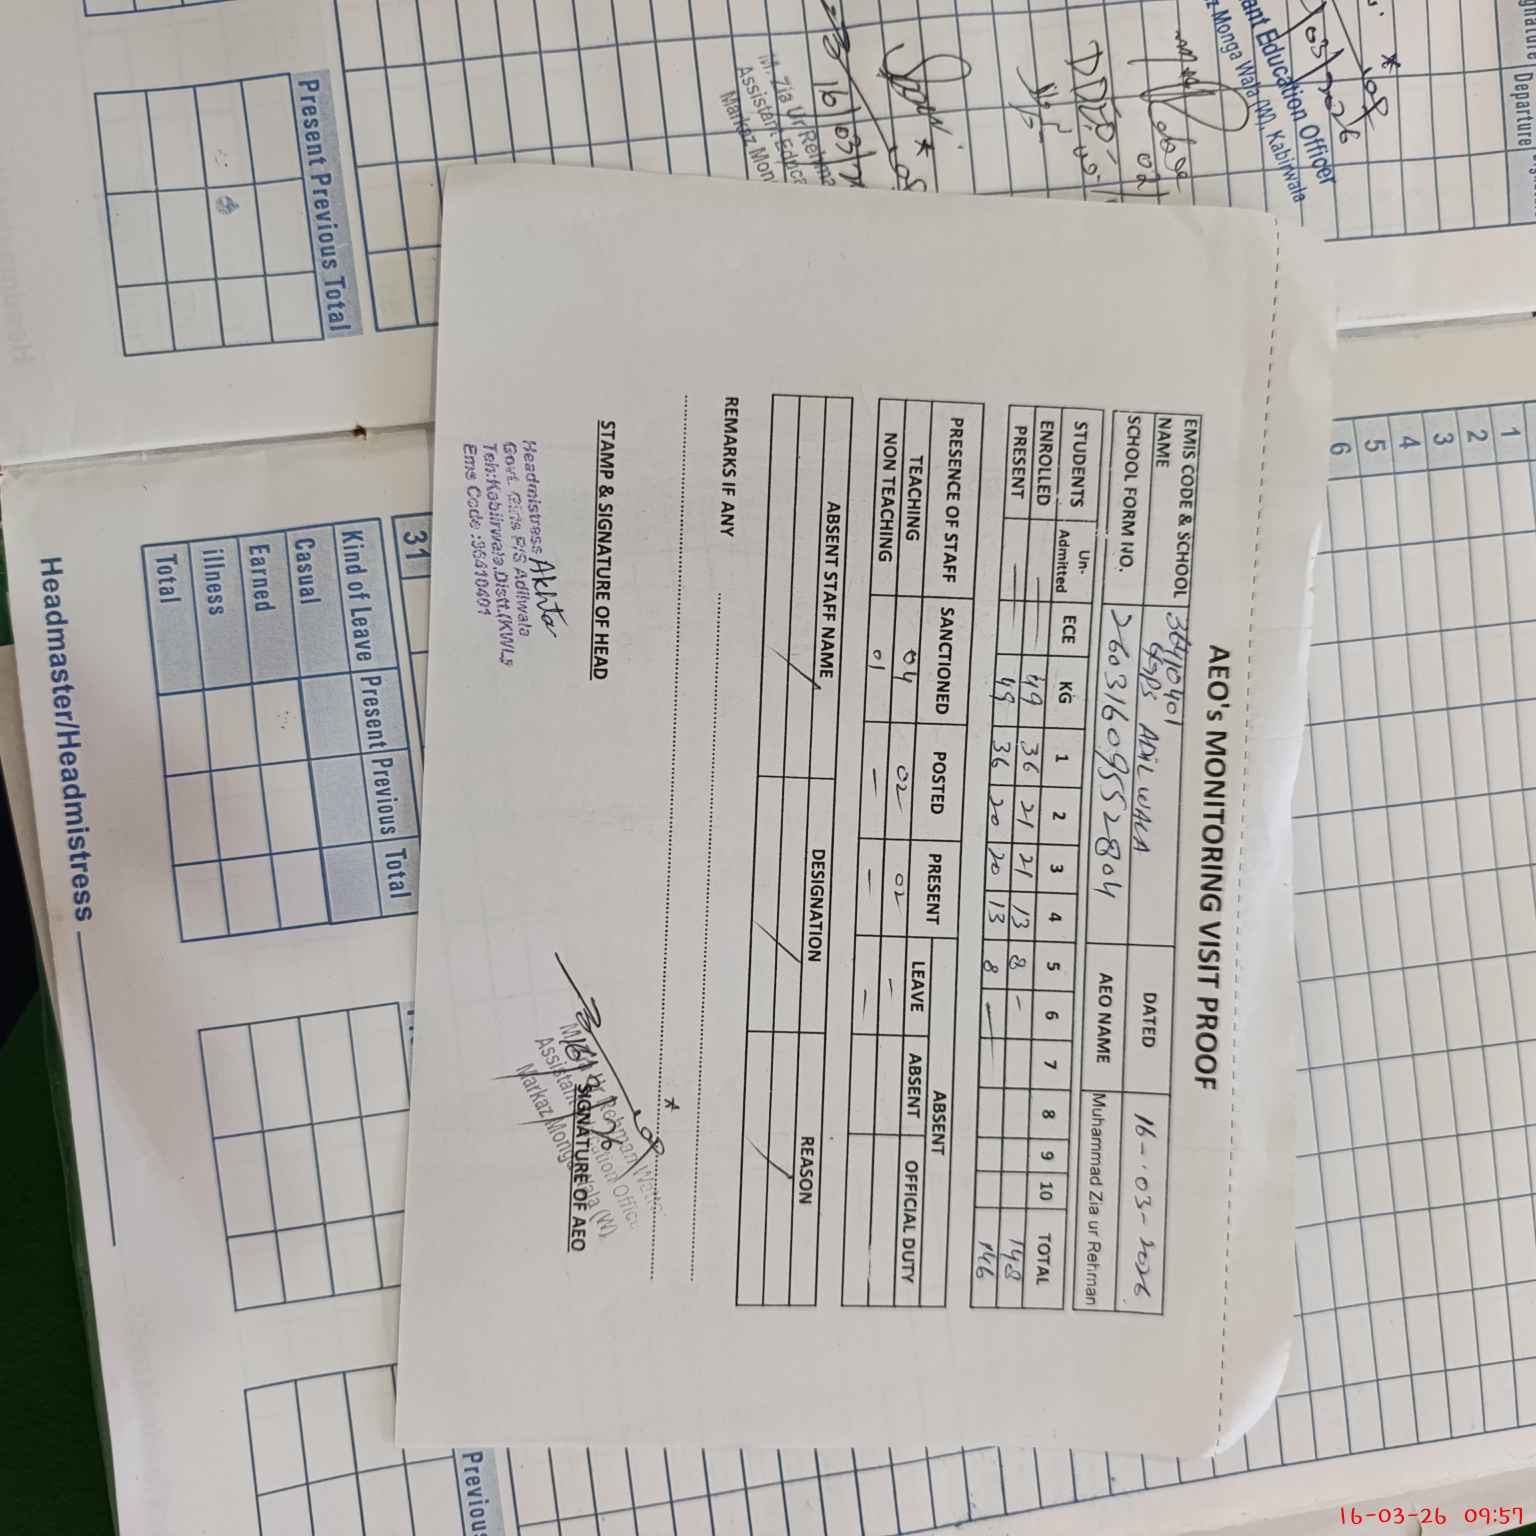 AEO's MONITORING VISIT PROOF
EMIS CODE & SCHOOL NAME 36410401 GGPS ADIL WALA DATED 16-03-2026
SCHOOL FORM NO. 26031609552804 AEO NAME Muhammad Zia ur Rehman
STUDENTS Un-Admitted ECE KG 1 2 3 4 5 6 7 8 9 10 TOTAL
ENROLLED — — 49 36 21 21 13 8 - 148
PRESENT — — 49 36 20 20 13 8 — 146
PRESENCE OF STAFF SANCTIONED POSTED PRESENT ABSENT
LEAVE ABSENT OFFICIAL DUTY
TEACHING 04 02 02 -
NON TEACHING 01 - - -
ABSENT STAFF NAME DESIGNATION REASON
REMARKS IF ANY
STAMP & SIGNATURE OF HEAD
SIGNATURE OF AEO
Headmistress
Govt. Girls P/S Adilwala
Teh:Kabirwala.Distt.(KWL)
Ems Code :36410401
Assistant
Markaz Monga Wala (W)
Present Previous Total
M. Zia Ur Rehma
Assistant Educa
Markaz Mon
16/03/
ant Education Officer
z Monga Wala (W), Kabirwala
03/2026
Departure
1
2
3
4
5
6
31
Kind of Leave Present Previous Total
Casual
Earned
illness
Total
Headmaster/Headmistress
Previous
16-03-26 09:57